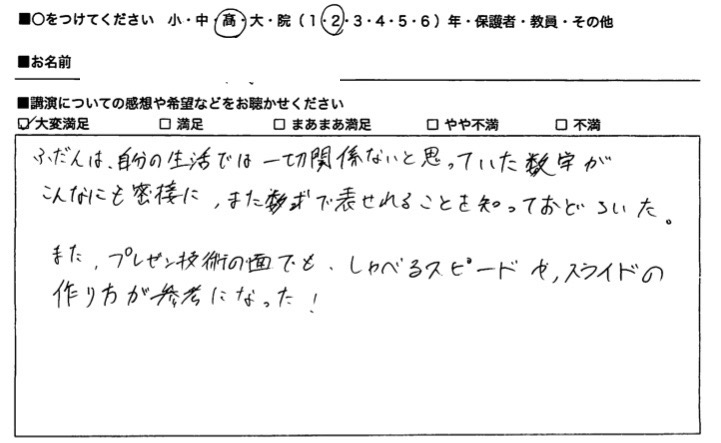 ■○をつけてください 小・中・高・大・院（1・2・3・4・5・6）年・保護者・教員・その他
■お名前
■講演についての感想や希望などをお聴かせください
☑大変満足 □満足 □まあまあ満足 □やや不満 □不満
ふだんは、自分の生活では一切関係ないと思っていた数学が
こんなにも密接に、また数式で表せれることを知っておどろいた。
また、プレゼン技術の面でも、しゃべるスピードや、スライドの
作り方が参考になった！